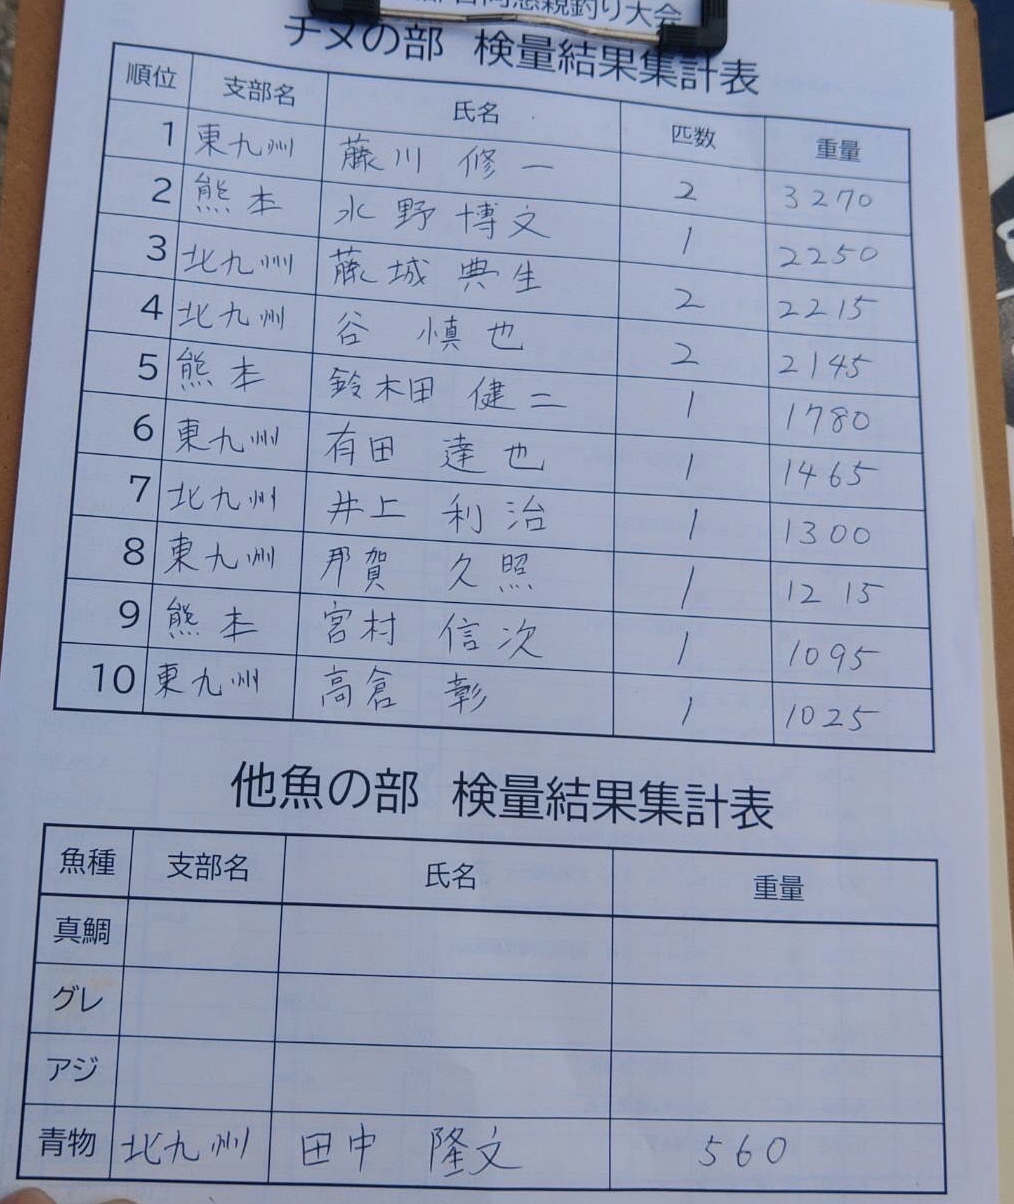 合同懇親釣り大会
チヌの部 検量結果集計表
順位 支部名 氏名 匹数 重量
1 東九州 藤川 修一 2 3270
2 熊本 水野 博文 1 2250
3 北九州 藤城 典生 2 2215
4 北九州 谷 慎也 2 2145
5 熊本 鈴木田 健二 1 1780
6 東九州 有田 達也 1 1465
7 北九州 井上 利治 1 1300
8 東九州 那賀 久照 1 1215
9 熊本 宮村 信次 1 1095
10 東九州 高倉 彰 1 1025
他魚の部 検量結果集計表
魚種 支部名 氏名 重量
真鯛
グレ
アジ
青物 北九州 田中 隆文 560